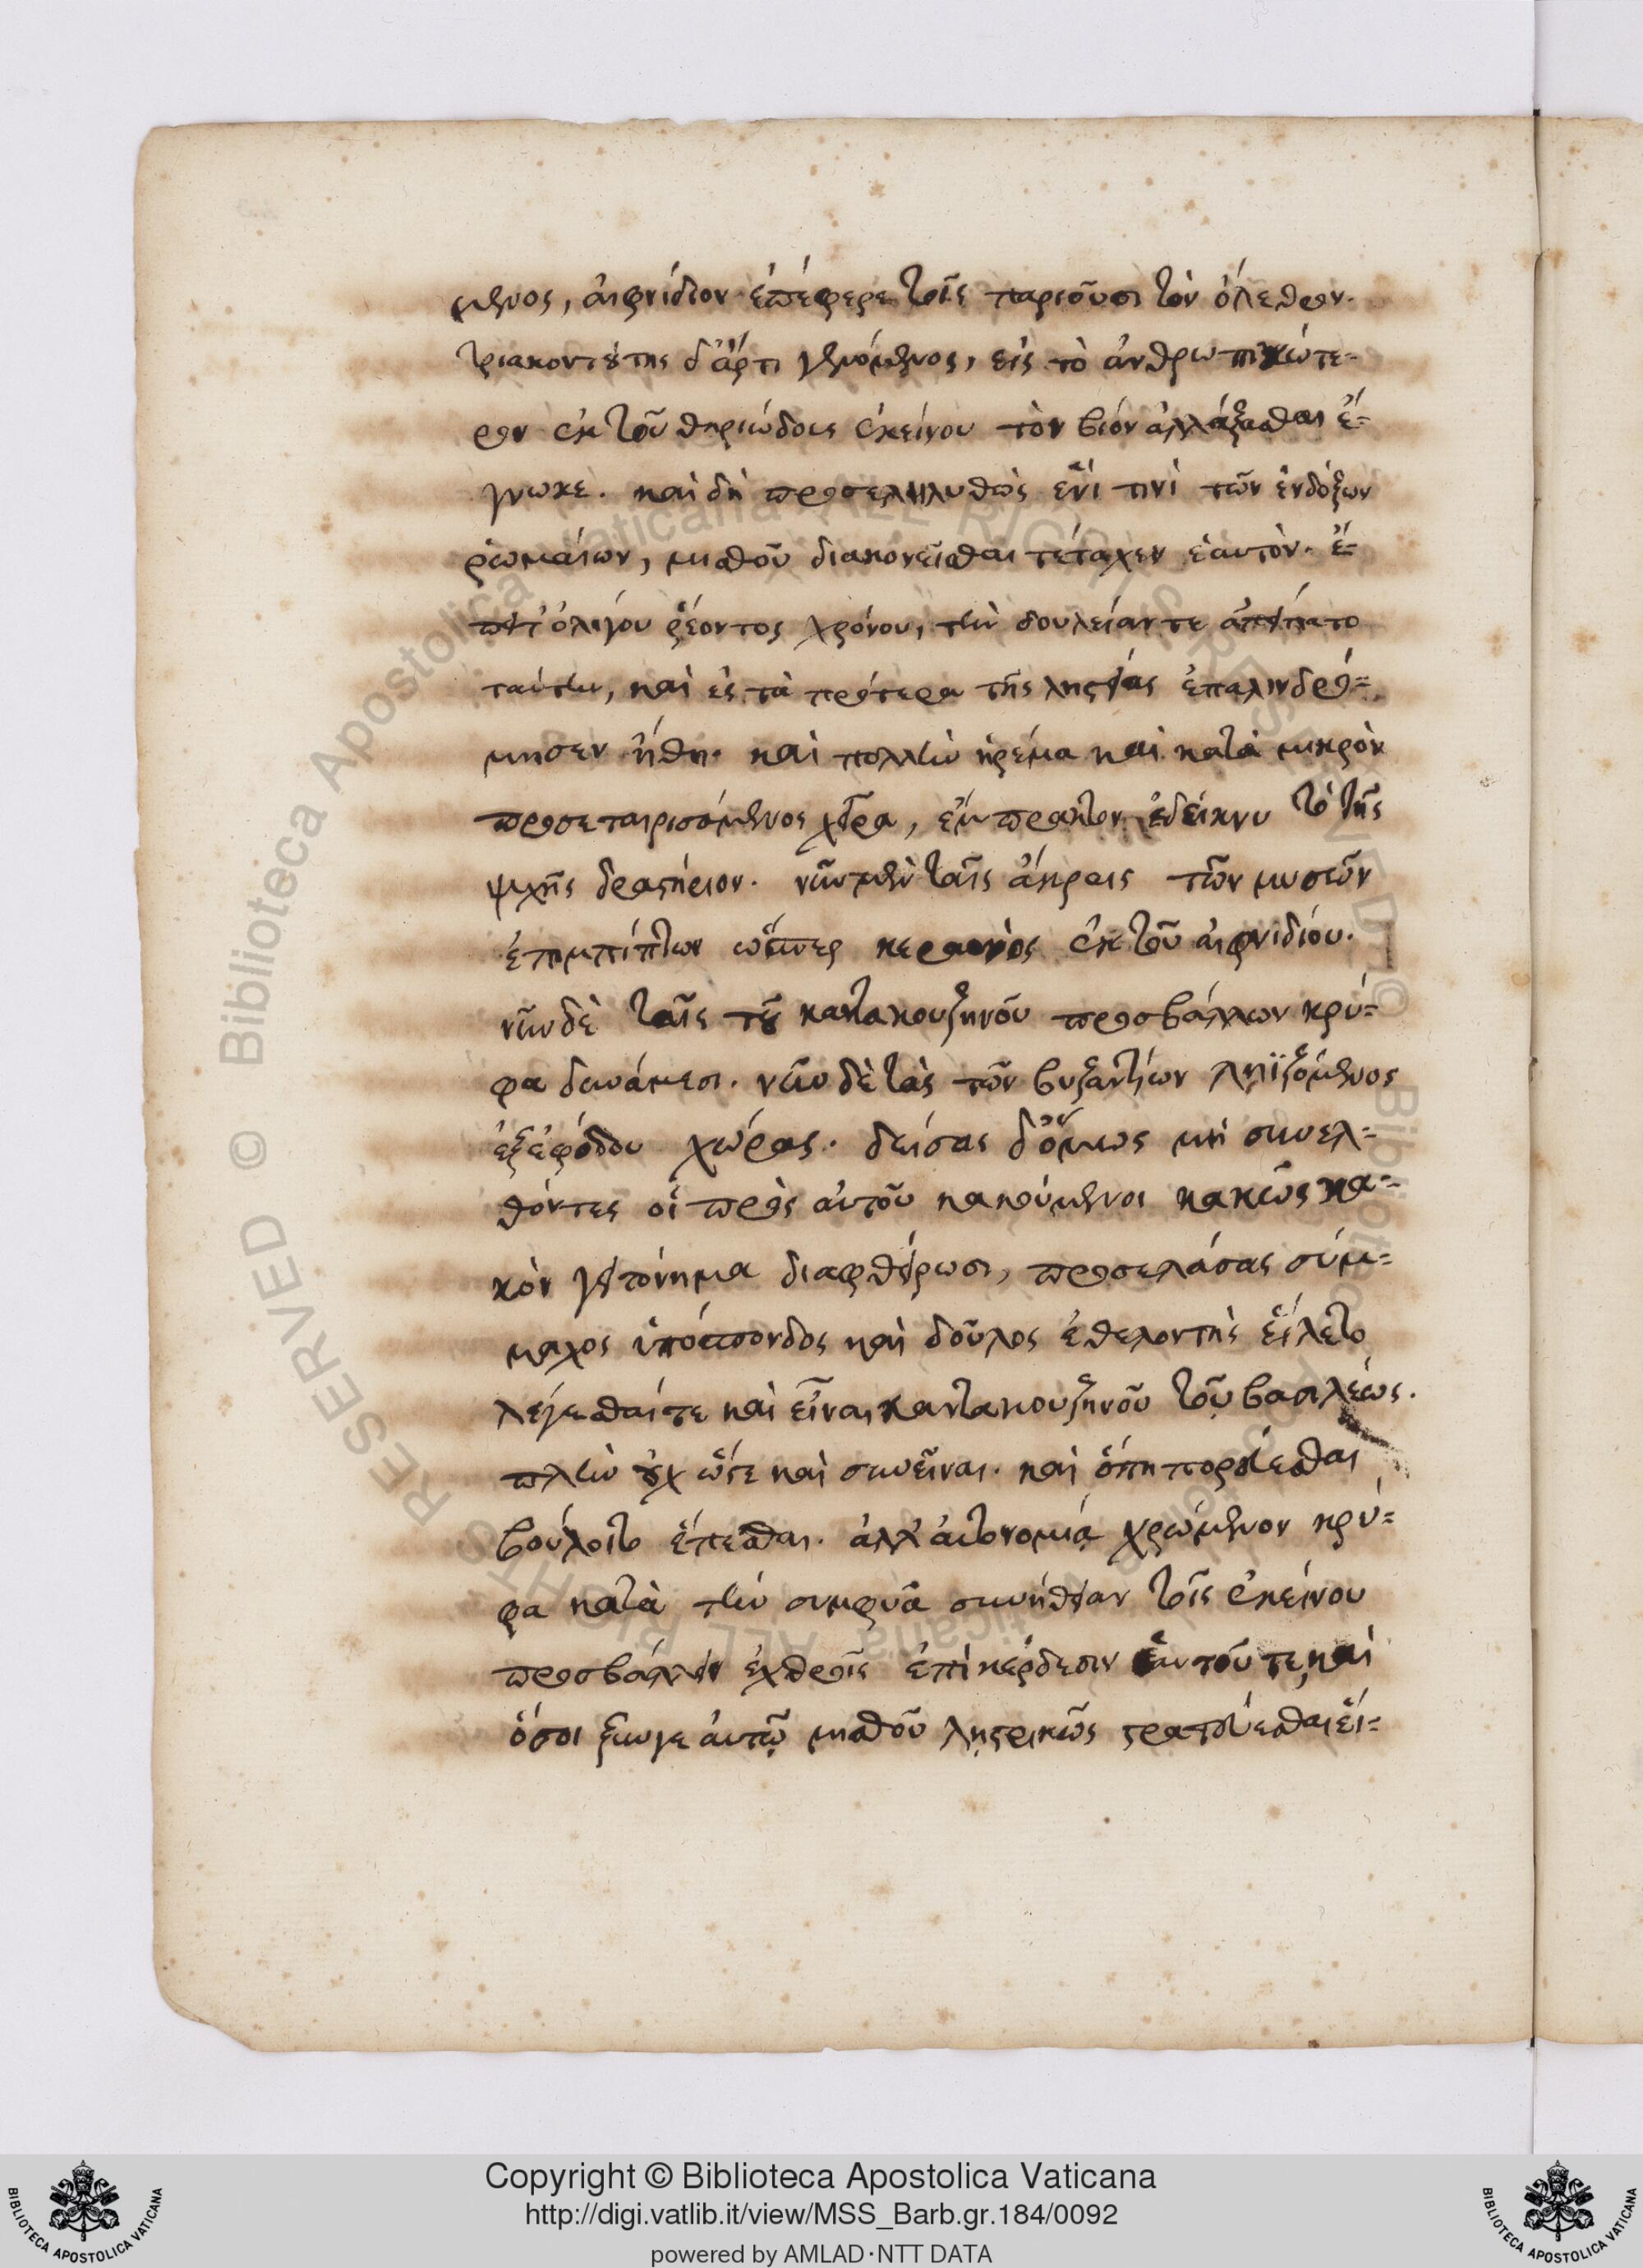 μενος, αἰφνίδιον ἐπέφερε τοῖς παριοῦσι τὸν ὄλεθρον.
τριακοντούτης δ' ἄρτι γενόμενος, εἰς τὸ ἀνθρωπικώτε-
ρον ἐκ τοῦ θηριώδους ἐκείνου τὸν βίον ἀλλάξασθαι ἔ-
γνωκε. καὶ δὴ προσεληλυθὼς ἑνί τινι τῶν ἐνδόξων
ῥωμαίων, μισθοῦ διακονεῖσθαι τέταχεν ἑαυτόν. ἔ-
πειτ' ὀλίγου ῥέοντος χρόνου, τὴν δουλείαν τε ἀπείπατο
ταύτην, καὶ ἐς τὰ πρότερα τῆς ληστείας ἐπαλινδρό-
μησεν ἤθη. καὶ πολλὴν ἠρέμα καὶ κατὰ μικρὸν
προσεταιρισάμενος χεῖρα, ἔμπρακτον ἐδείκνυ τὸ τῆς
ψυχῆς δραστήριον. νῦν μὲν ταῖς ἄκραις τῶν μυσῶν
ἐπεμπίπτων ὥσπερ κεραυνὸς ἐκ τοῦ αἰφνιδίου.
νῦν δὲ ταῖς τοῦ καντακουζηνοῦ προσβάλλων κρύ-
φα δυνάμεσι. νῦν δὲ τὰς τῶν βυζαντίων ληϊζόμενος
ἐξ ἐφόδου χώρας. δείσας δ' ὅμως μὴ συνελ-
θόντες οἱ πρὸς αὐτοῦ κακούμενοι κακῶς κα-
κὸν γειτόνημα διαφθείρωσι, προσελάσας σύμ-
μαχος ὑπόσπονδος καὶ δοῦλος ἐθελοντὴς εἵλετο
λέγεσθαί τε καὶ εἶναι καντακουζηνοῦ τοῦ βασιλέως.
πλὴν οὐχ ὥστε καὶ συνεῖναι. καὶ ὅπῃ πορεύεσθαι
βούλοιτο ἕπεσθαι. ἀλλ' αὐτονομίᾳ χρώμενον κρύ-
φα κατὰ τὴν συμφυᾶ συνήθειαν τοῖς ἐκείνου
προσβάλλειν ἐχθροῖς ἐπὶ κέρδεσιν ἑαυτοῦ τε, καὶ
ὅσοι ξύν γε αὐτῷ μισθοῦ λῃστρικῶς στρατεύεσθαι εἵ-
Copyright © Biblioteca Apostolica Vaticana
http://digi.vatlib.it/view/MSS_Barb.gr.184/0092
powered by AMLAD·NTT DATA